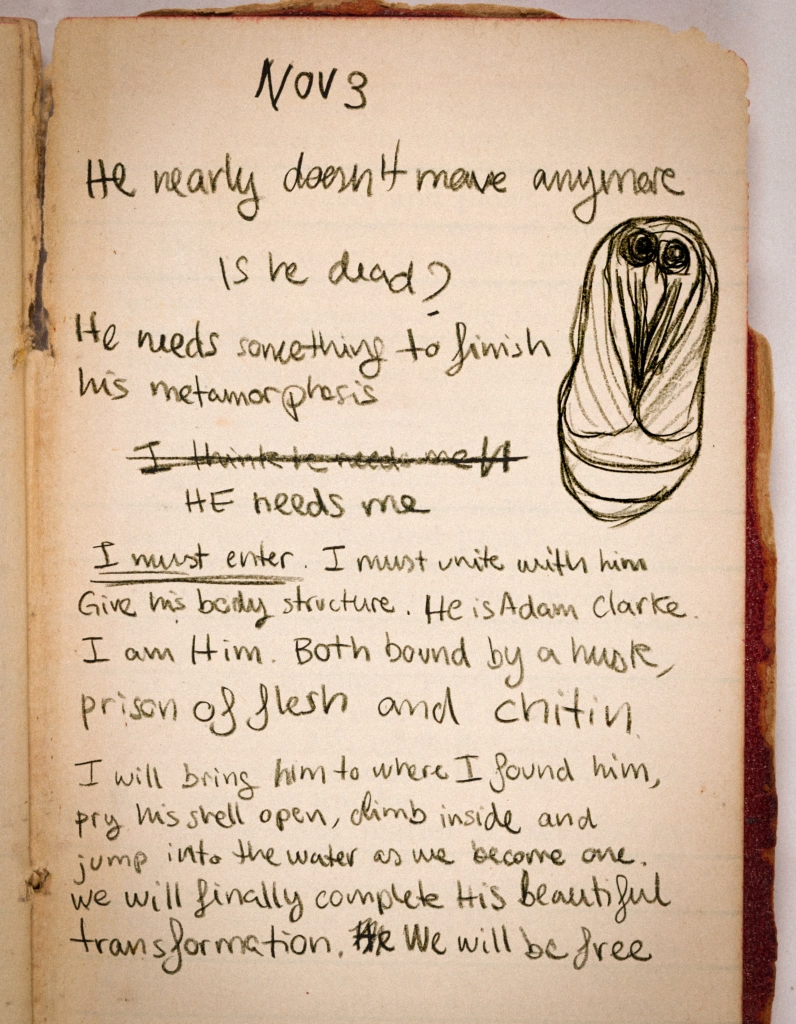 Nov 3
He nearly doesn't move anymore
Is he dead?
He needs something to finish
his metamorphosis
I think he needs me
HE needs me
I must enter. I must unite with him
Give his body structure. He is Adam Clarke.
I am Him. Both bound by a husk,
prison of flesh and chitin
I will bring him to where I found him,
pry his shell open, climb inside and
jump into the water as we become one.
we will finally complete His beautiful
transformation. He We will be free